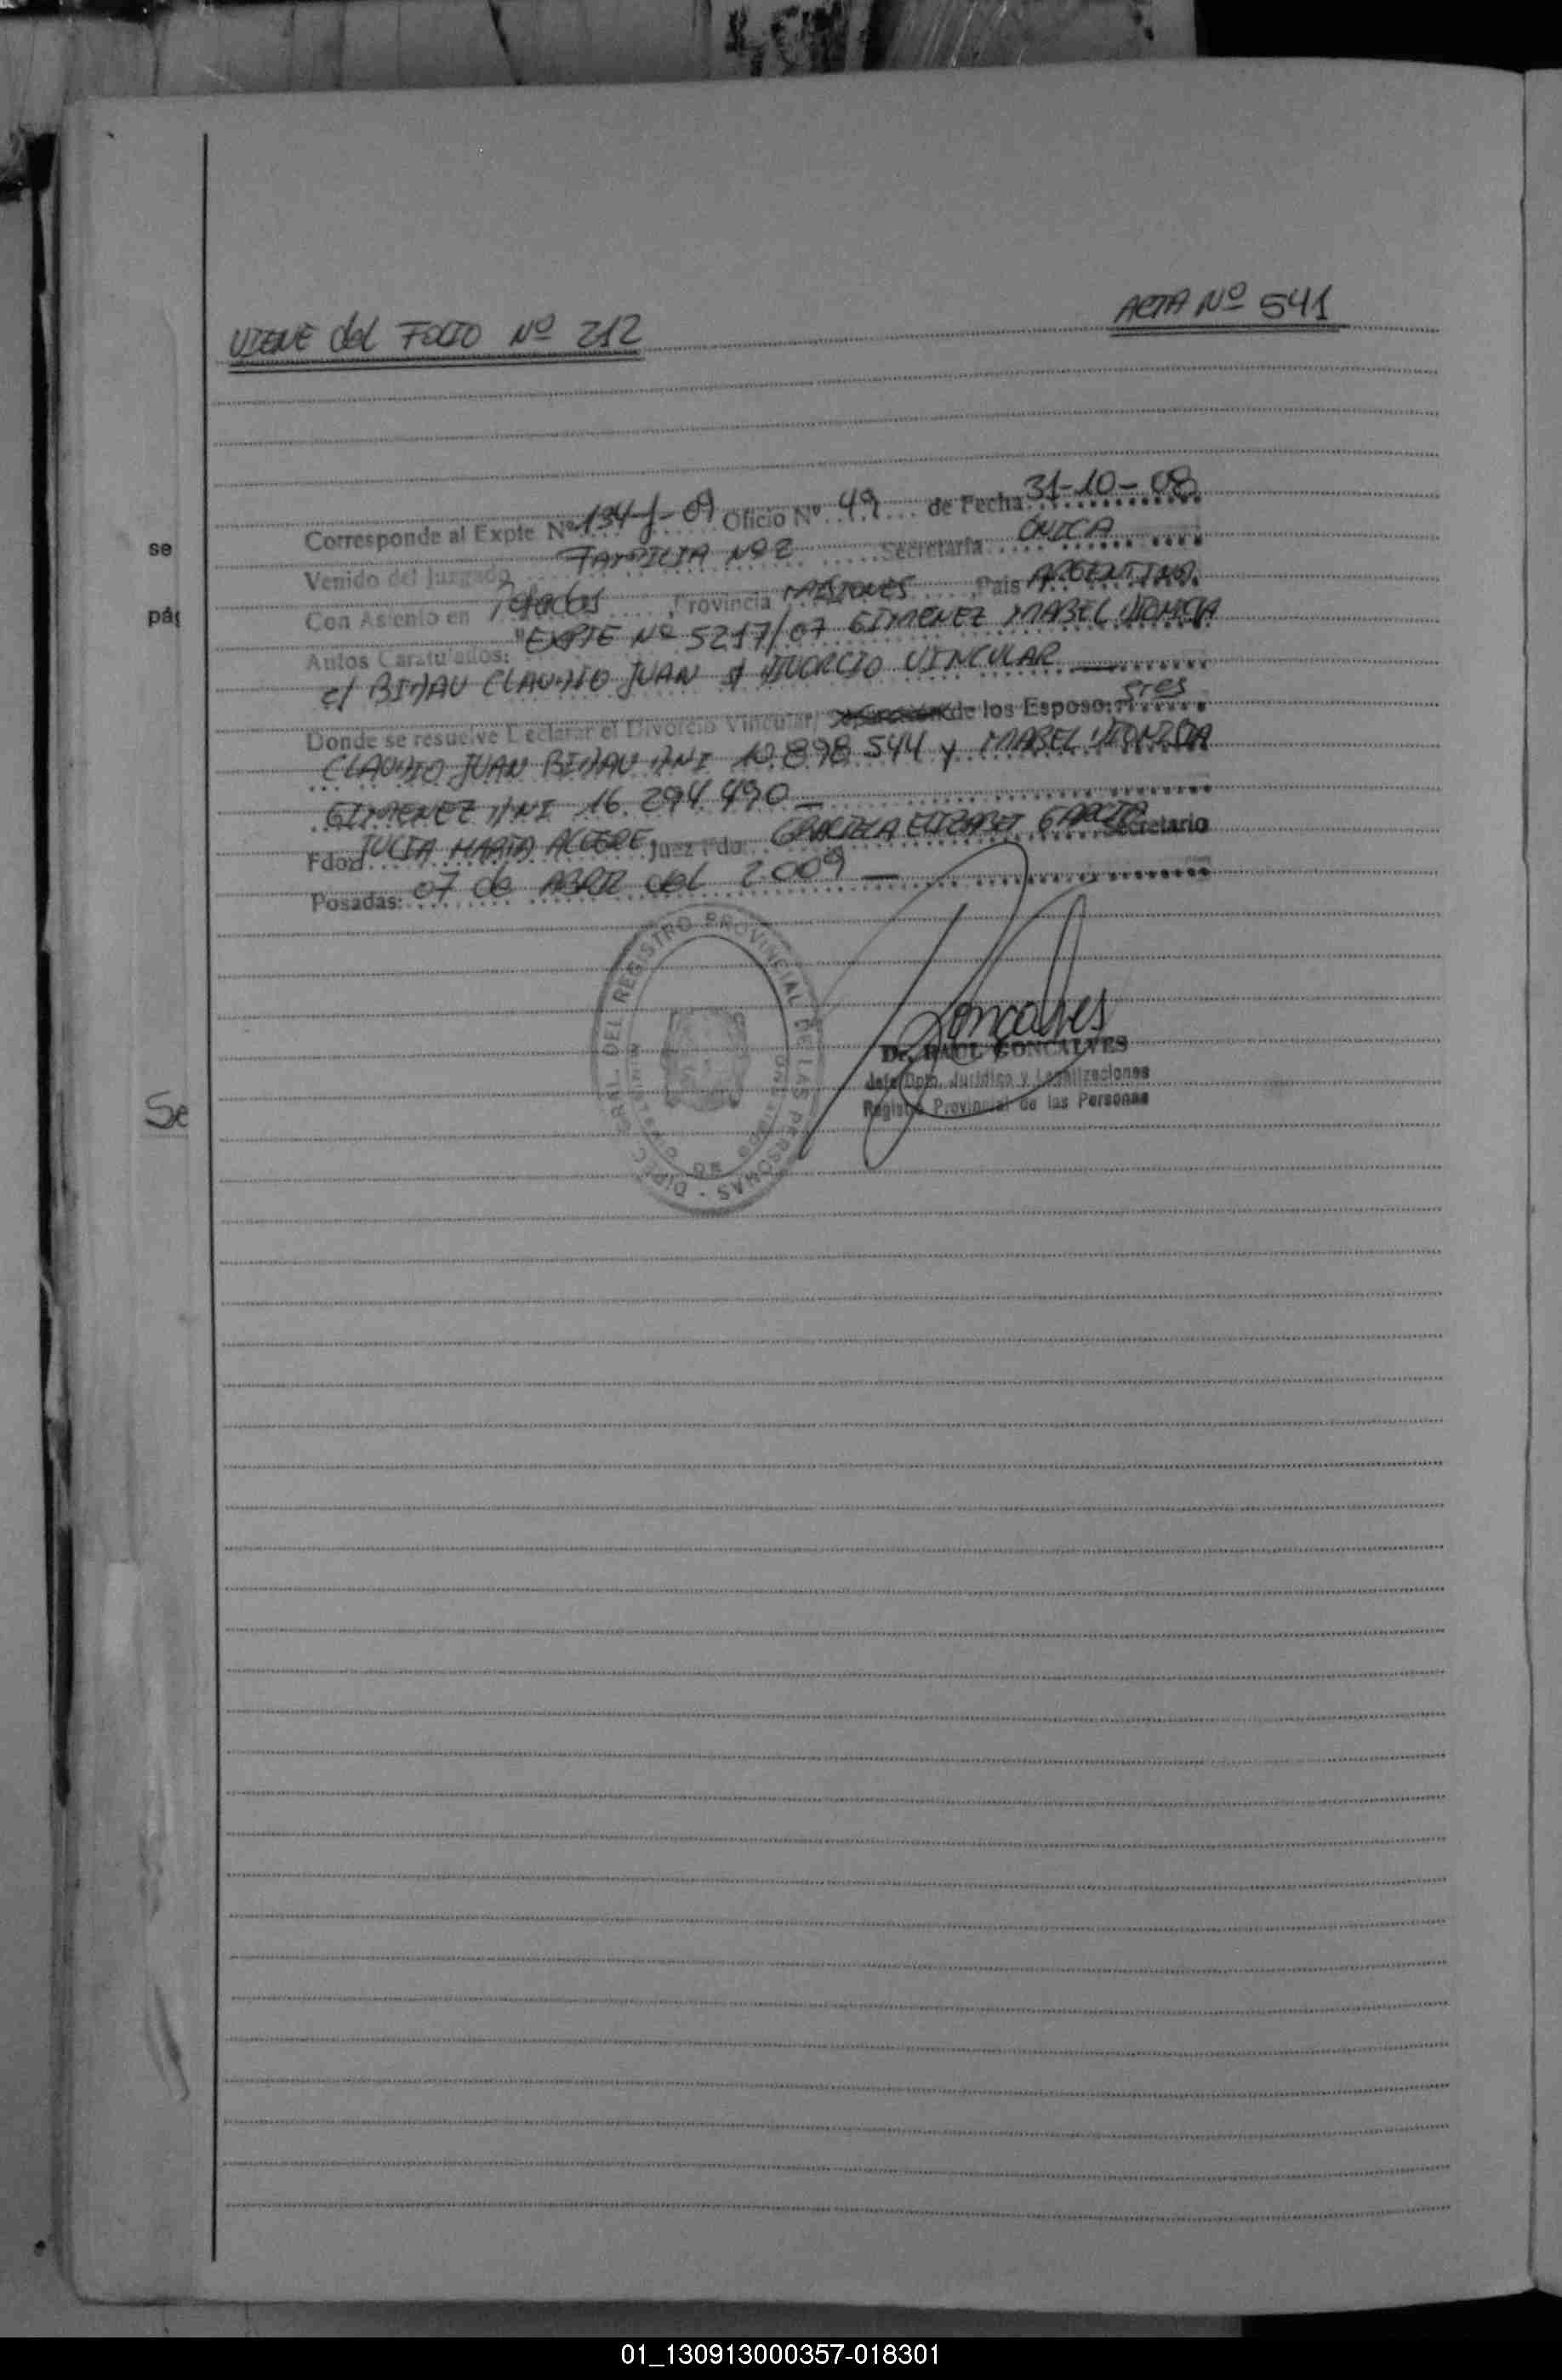 VIENE del FOLIO Nº 212
ACTA Nº 541
Corresponde al Expte Nº 134-J-09 Oficio Nº 49 de Fecha 31-10-08
se
Venido del Juzgado FAMILIA Nº 2 Secretaría ÚNICA
Con Asiento en Posadas Provincia MISIONES País ARGENTINA.
pág
Autos Caratulados: "EXPTE Nº 5217/07 GIMENEZ MABEL
c/ BIDAU CLAUDIO JUAN s/ DIVORCIO VINCULAR
Donde se resuelve Declarar el Divorcio Vincular de los Esposos: Sres
CLAUDIO JUAN BIDAU DNI 10.898.544 y MABEL
GIMENEZ DNI 16.294.490
Fdo: JULIA MARIA ALEGRE Juez Fdo: GRACIELA ELIZABET GARCIA Secretario
Posadas: 07 de ABRIL del 2009
DIREC. GRAL. DEL REGISTRO PROVINCIAL DE LAS PERSONAS
Goncalves
Dr. RAUL GONCALVES
Jefe Dpto. Jurídico y Legalizaciones
Registro Provincial de las Personas
Se
01_130913000357-018301